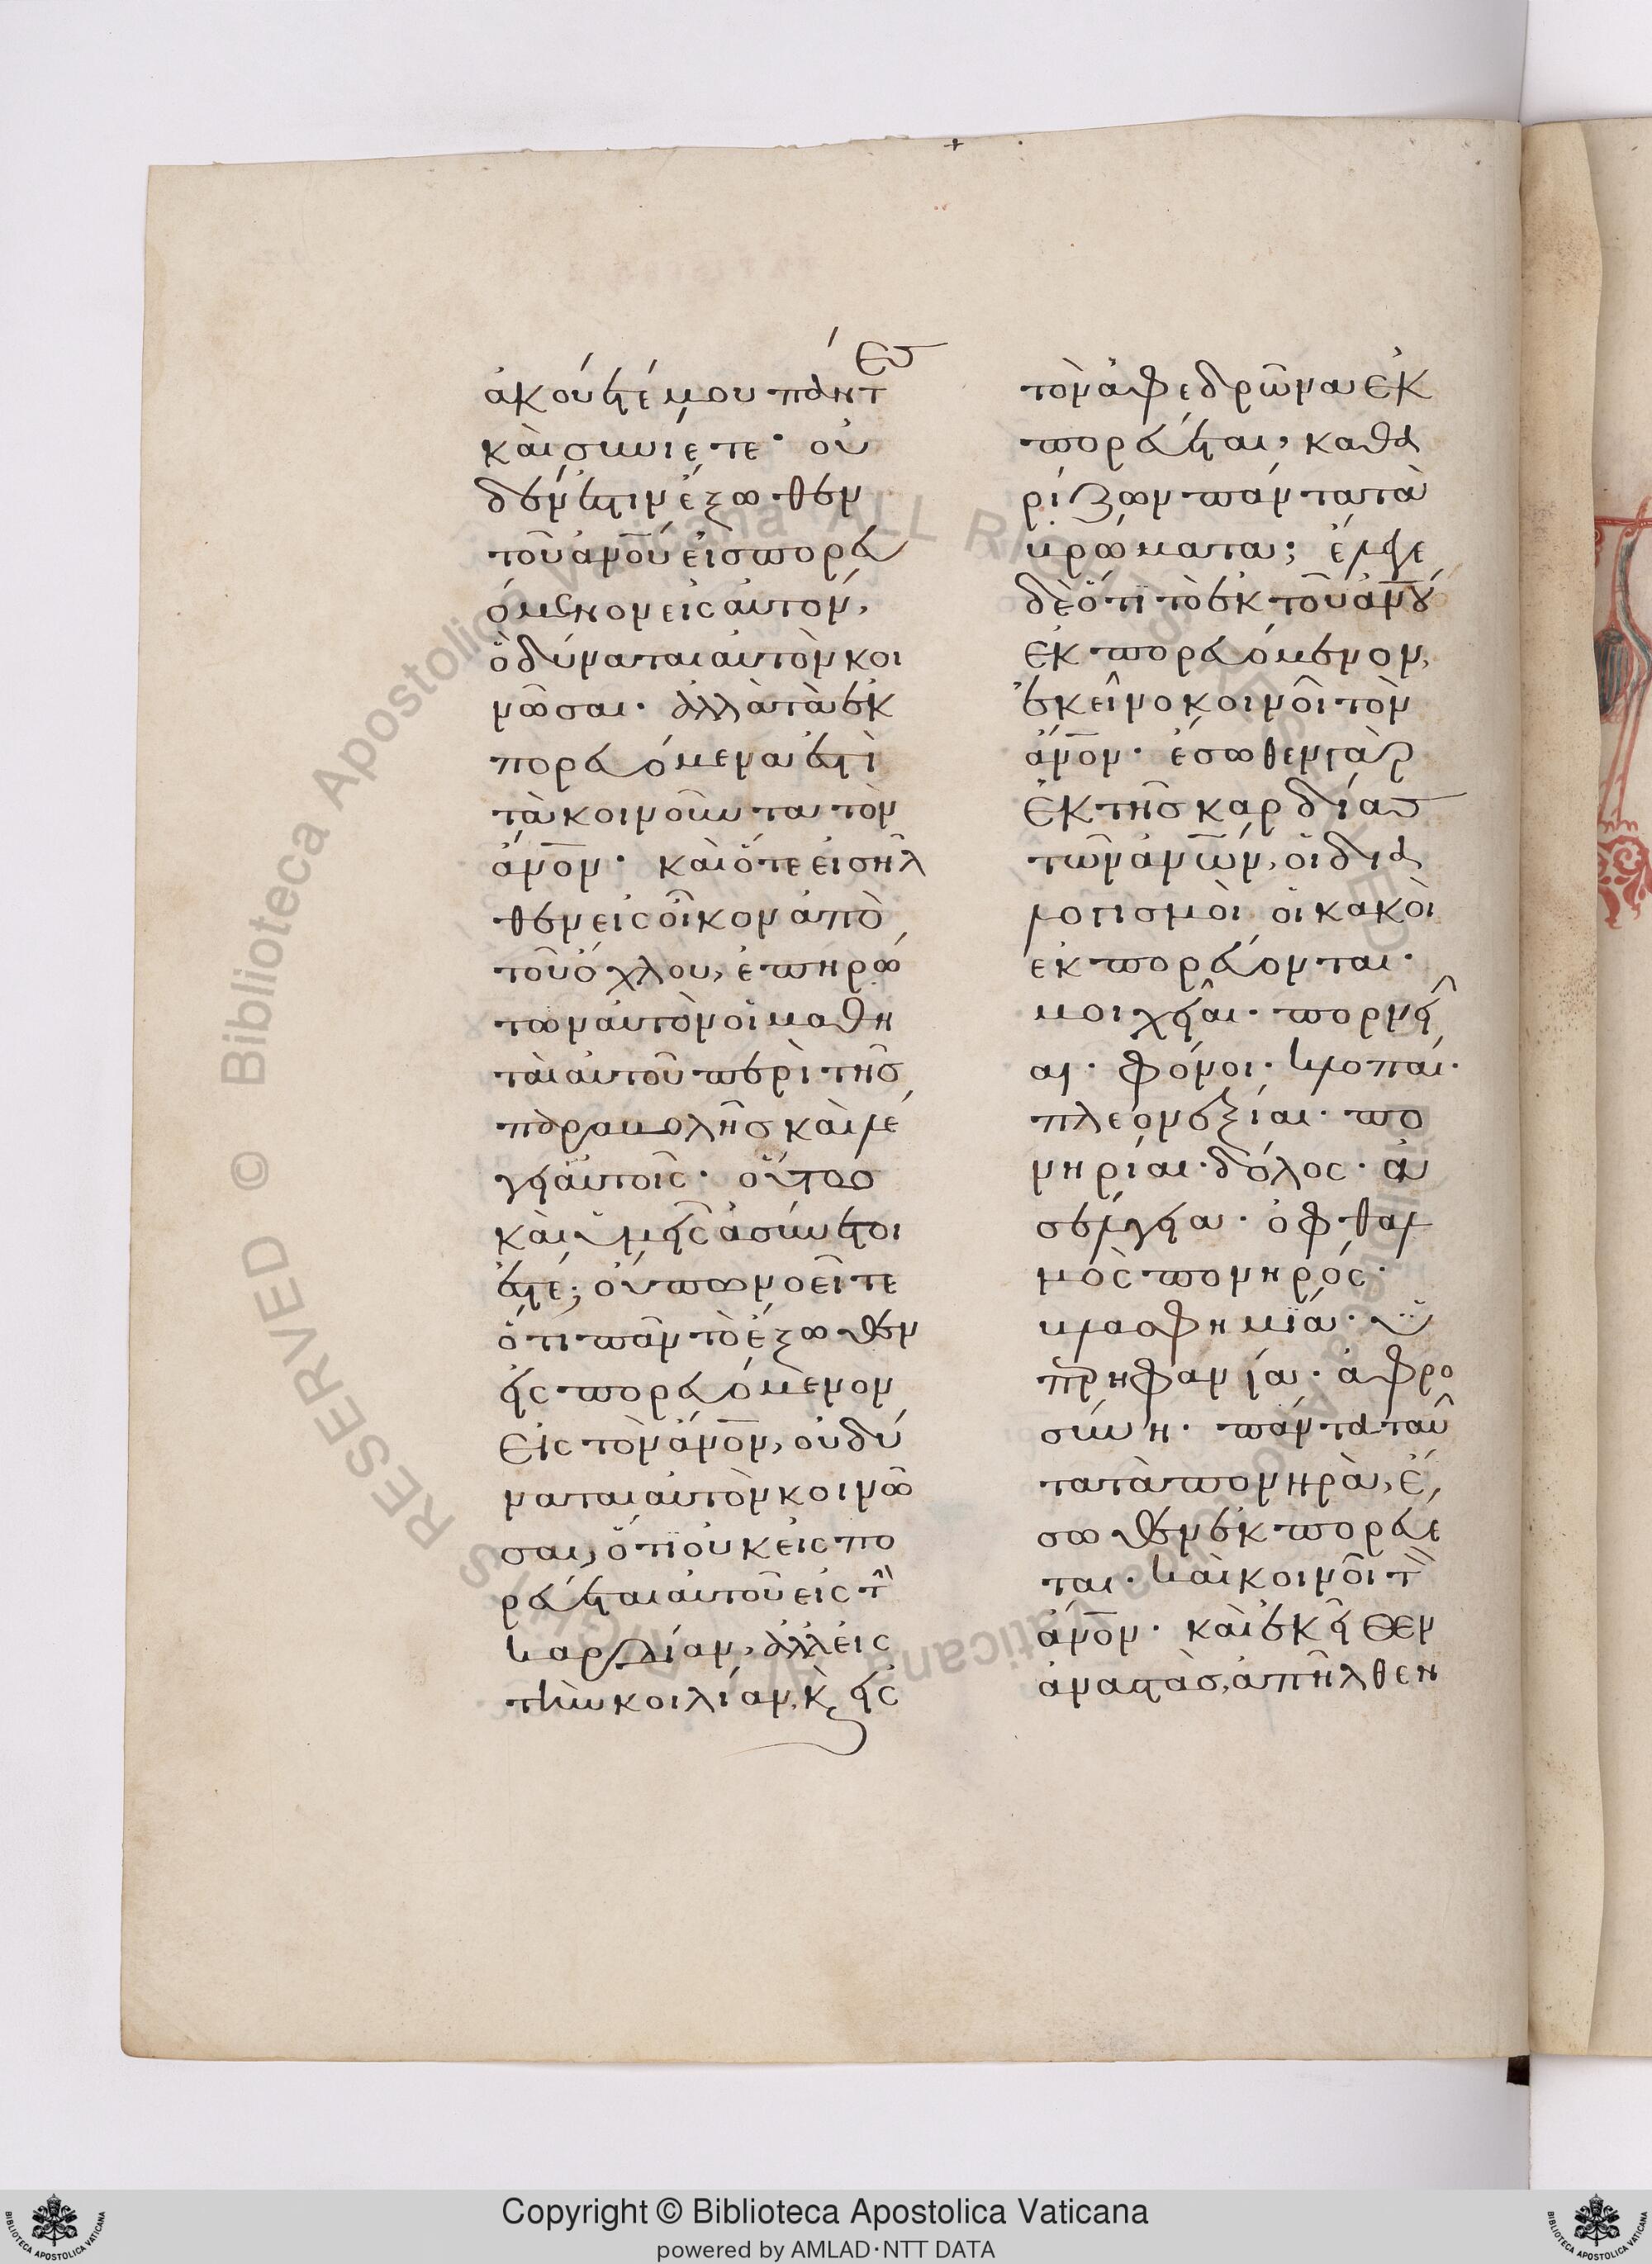 ἀκούετέ μου πάντες
καὶ συνίετε· οὐ
δέν ἐστιν ἔξωθεν
τοῦ ἀνου εἰσπορευ
όμενον εἰς αὐτόν,
ὃ δύναται αὐτὸν κοι
νῶσαι· ἀλλὰ τὰ ἐκ
πορευόμενα ἐστὶ
τὰ κοινοῦντα τὸν
ἄνον· καὶ ὅτε εἰσῆλ
θεν εἰς οἶκον ἀπὸ
τοῦ ὄχλου, ἐπηρώ
των αὐτὸν οἱ μαθη
ταὶ αὐτοῦ περὶ τῆς
παραβολῆς καὶ λέ
γει αὐτοῖς· οὕτως
καὶ ὑμεῖς ἀσύνετοι
ἐστέ; οὔπω νοεῖτε
ὅτι πᾶν τὸ ἔξωθεν
εἰσπορευόμενον
εἰς τὸν ἄνον, οὐ δύ
ναται αὐτὸν κοινῶ
σαι, ὅτι οὐκ εἰσπο
ρεύεται αὐτοῦ εἰς τὴν
καρδίαν, ἀλλ εἰς
τὴν κοιλίαν, κ εἰς
τὸν ἀφεδρῶνα ἐκ
πορεύεται, καθα
ρίζων πάντα τὰ
βρώματα; ἔλεγε
δὲ ὅτι τὸ ἐκ τοῦ ἀνου
ἐκπορευόμενον,
ἐκεῖνο κοινοῖ τὸν
ἄνον· ἔσωθεν γὰρ
ἐκ τῆς καρδίας
τῶν ἀνων, οἱ δια
λογισμοὶ οἱ κακοὶ
ἐκπορεύονται·
μοιχεῖαι· πορνεῖ
αι· φόνοι· κλοπαί·
πλεονεξίαι· πο
νηρίαι· δόλος· ἀ
σέλγεια· ὀφθαλ
μὸς πονηρός·
βλασφημία· ὑ
περηφανία· ἀφρο
σύνη· πάντα ταῦ
τα τὰ πονηρὰ, ἔ
σωθεν ἐκπορεύε
ται· καὶ κοινοῖ τὸν
ἄνον· καὶ ἐκεῖθεν
ἀναστὰς, ἀπῆλθεν
Copyright © Biblioteca Apostolica Vaticana
powered by AMLAD·NTT DATA